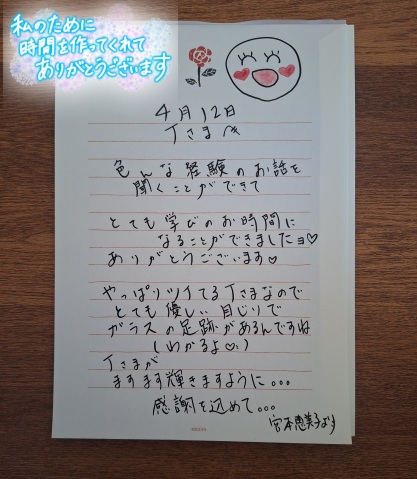 私のために
時間を作ってくれて
ありがとうございます
4月12日
Tさまへ
色んな経験のお話を
聞くことができて
とても学びのお時間に
なることができましたヨ♡
ありがとうございます♡
やっぱりツイてるTさまなので
とても優しい目じりで
ガラスの足跡があるんですね
(わかるよ♡)
Tさまが
ますます輝きますように...
感謝を込めて...
宮本恵美子より